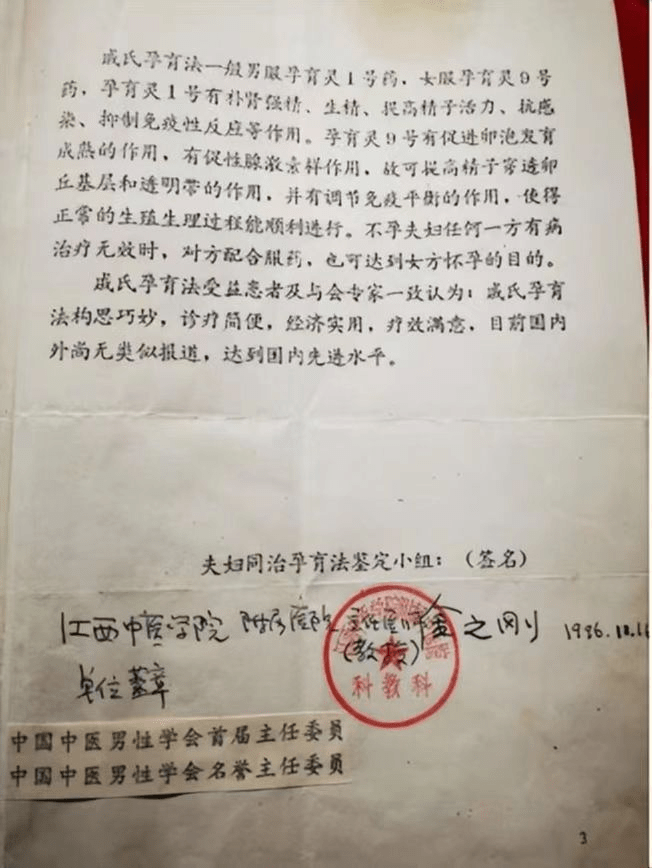 戚氏孕育法一般男服孕育灵1号药，女服孕育灵9号
药，孕育灵1号有补肾强精、生精、提高精子活力、抗感
染、抑制免疫性反应等作用。孕育灵9号有促进卵泡发育
成熟的作用，有促性腺激素样作用，故可提高精子穿透卵
丘基层和透明带的作用，并有调节免疫平衡的作用，使得
正常的生殖生理过程能顺利进行。不孕夫妇任何一方有病
治疗无效时，对方配合服药，也可达到女方怀孕的目的。
戚氏孕育法受益患者及与会专家一致认为：戚氏孕育
法构思巧妙，诊疗简便，经济实用，疗效满意，目前国内
外尚无类似报道，达到国内先进水平。
夫妇同治孕育法鉴定小组：（签名）
江西中医学院 附属医院 主任医师 金之刚 1996.10.16
(教授)
科教科
单位盖章
中国中医男性学会首届主任委员
中国中医男性学会名誉主任委员
3